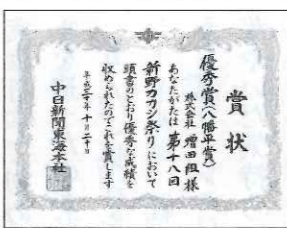 賞状
優秀賞(八幡平賞)
株式会社 増田組様
あなたがたは第十八回
新野カカシ祭りにおいて
頭書のとおり優秀な成績を
収められたのでこれを賞します
平成三十年十月二十日
中日新聞東海本社